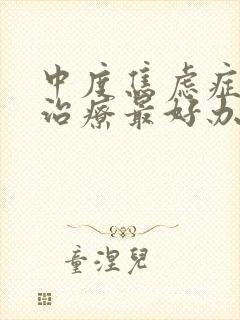 中度焦虑症
治疗最好办
童涅儿